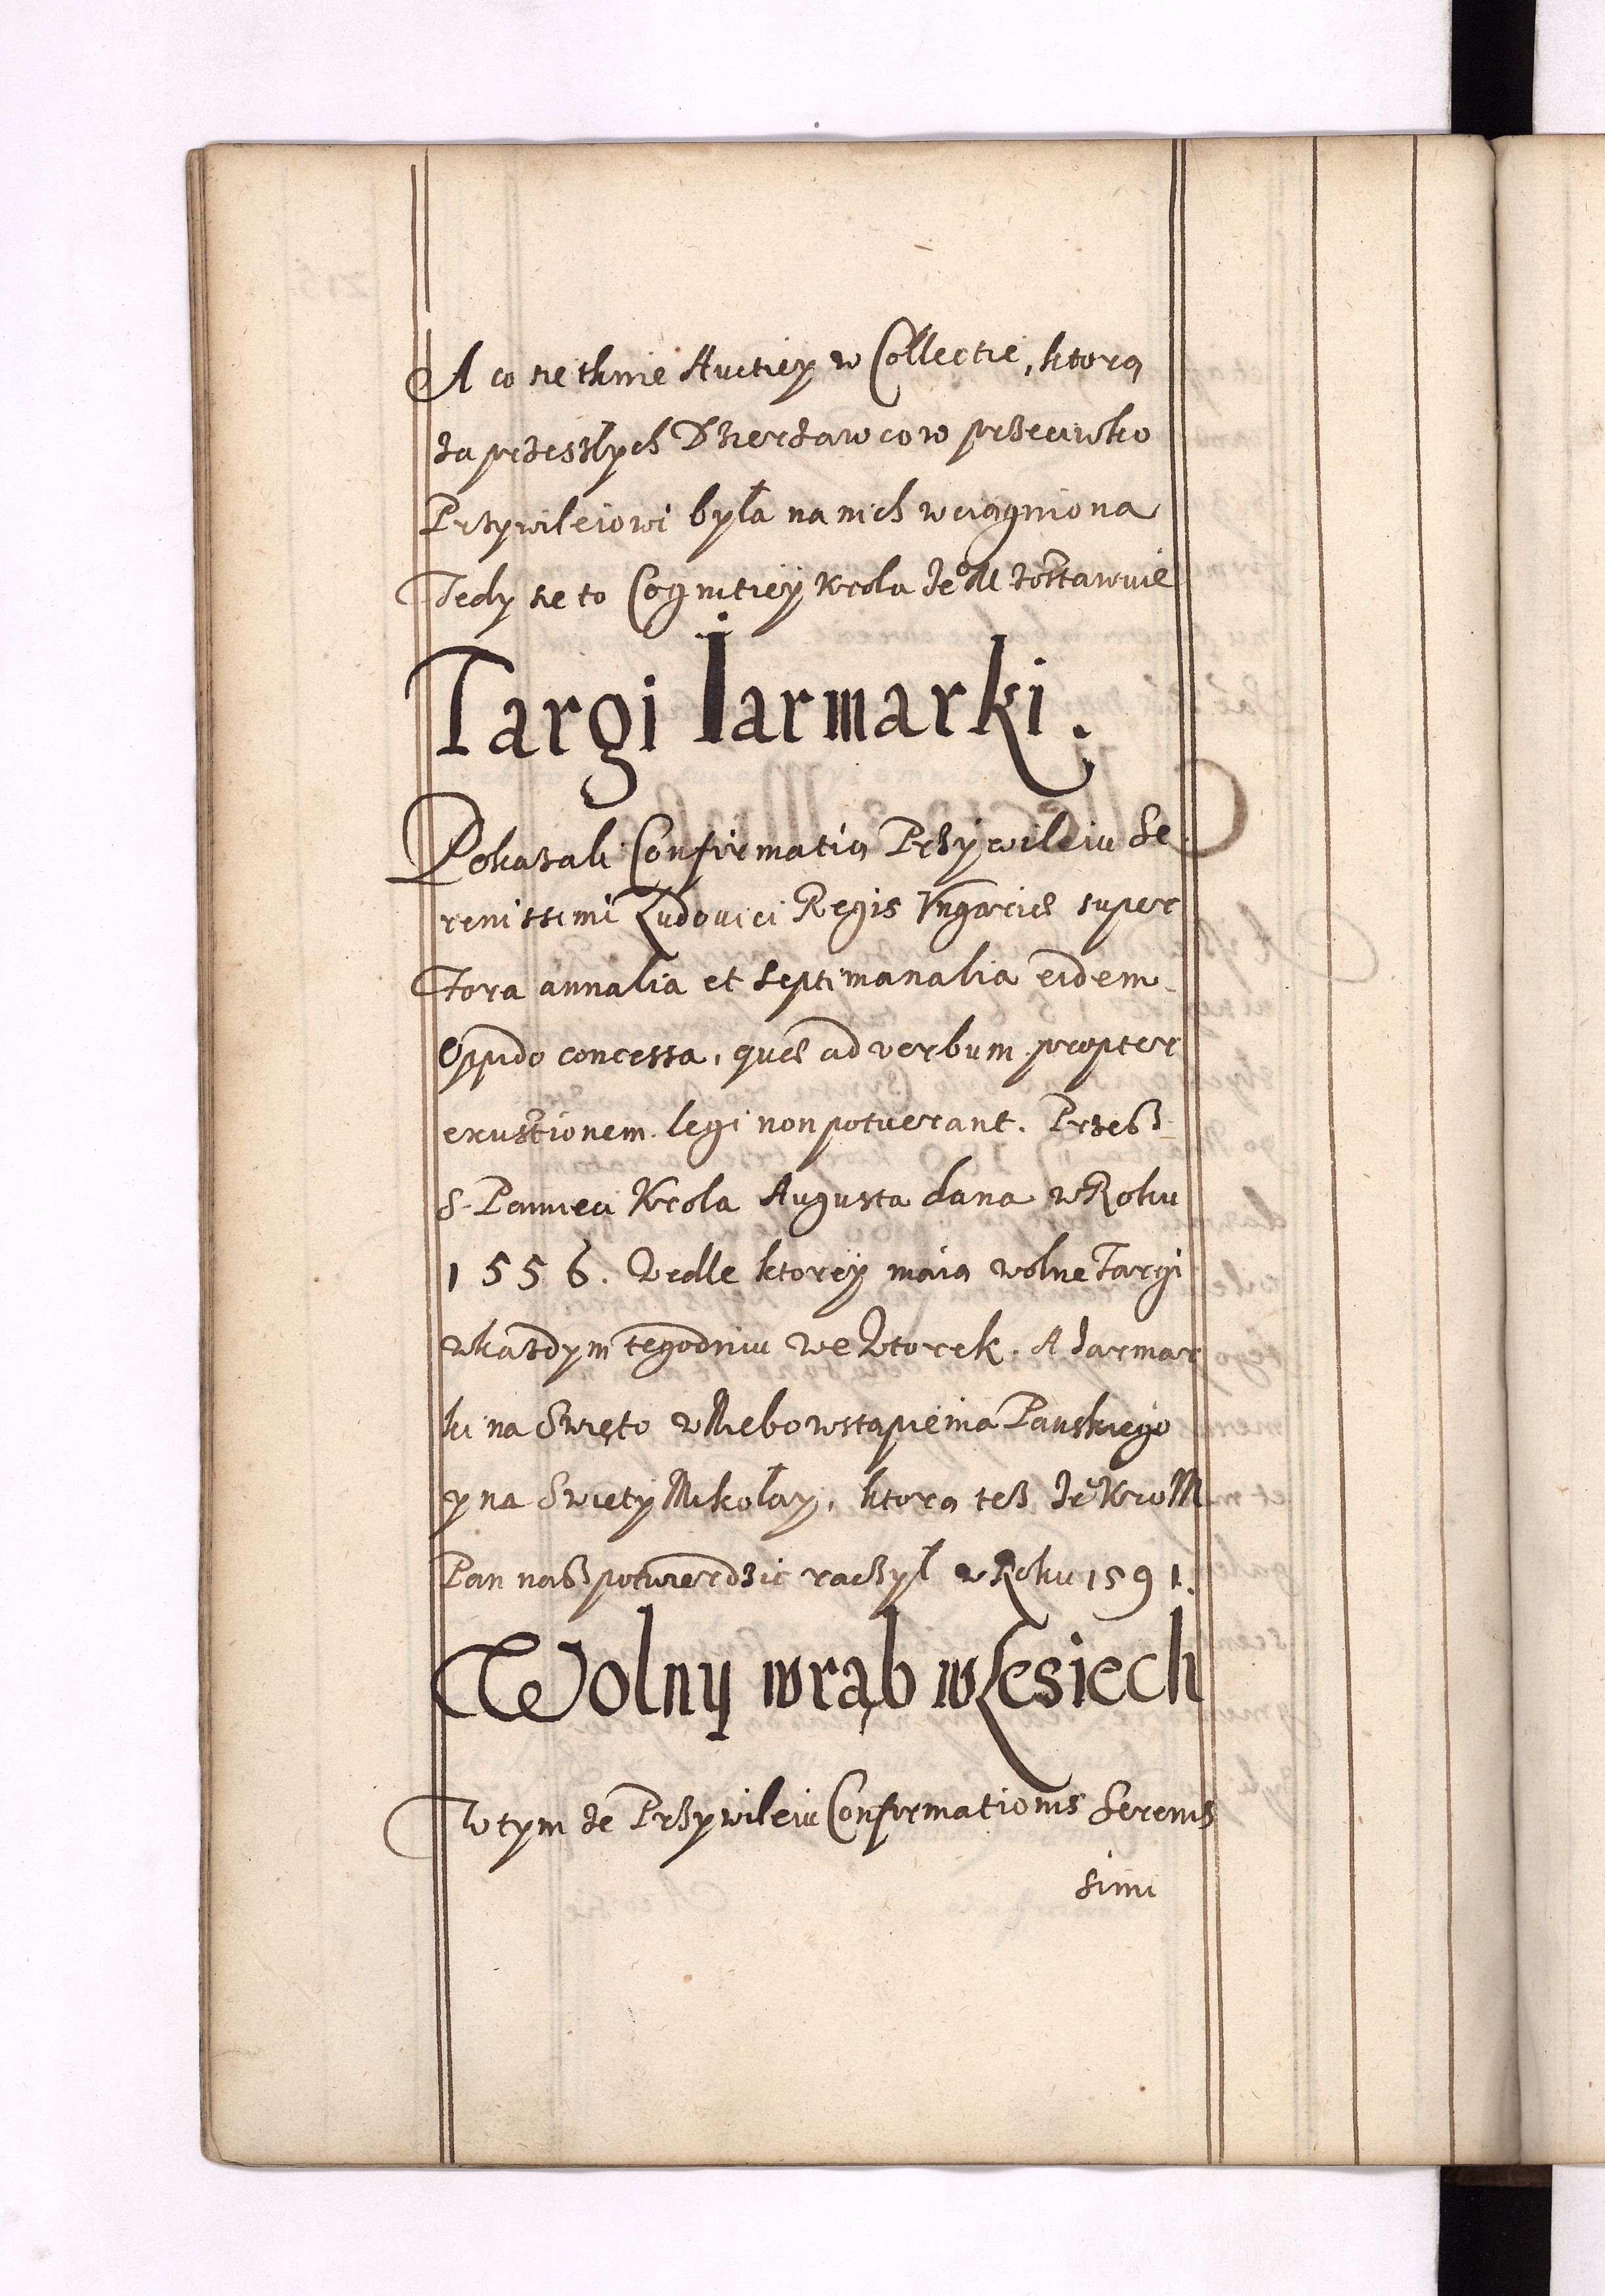 A co sie tknie Auctiey w Collectie, ktorą
za przeszłych Dzierżawcow przeciwko
Przywileiowi była na nich wciągniona
Tedy sie to Cognitiey Krola Je° M zostawuie
Targi Iarmarki.
Pokazali Confirmatią Przywileiu Se
renissimi Ludouici Regis Vngariæ super
Fora annalia et septimanalia eidem
Oppido concessa, quæ ad verbum propter
exustionem legi non potuerant. Przesz
S. Pamieci Krola Augusta dana w Roku
1556. Wedle ktorey maią wolne Targi
w kazdym tegodniu we Wtorek. A Jarmar
ki na Swięto w Niebowstąpienia Panskiego
y na Swięty Mikołay, ktorą tesz Je° Kro M
Pan nasz potwierdzic raczył w Roku 1591.
Wolny wrąb w Lesiech
W tym ze Przywileiu Confirmationis Serenis
simi